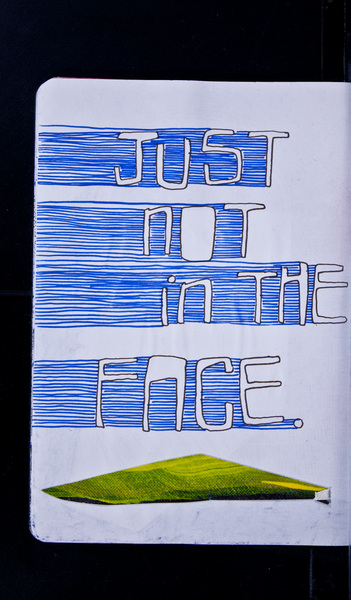 JUST
nOT
in THE
FACE.